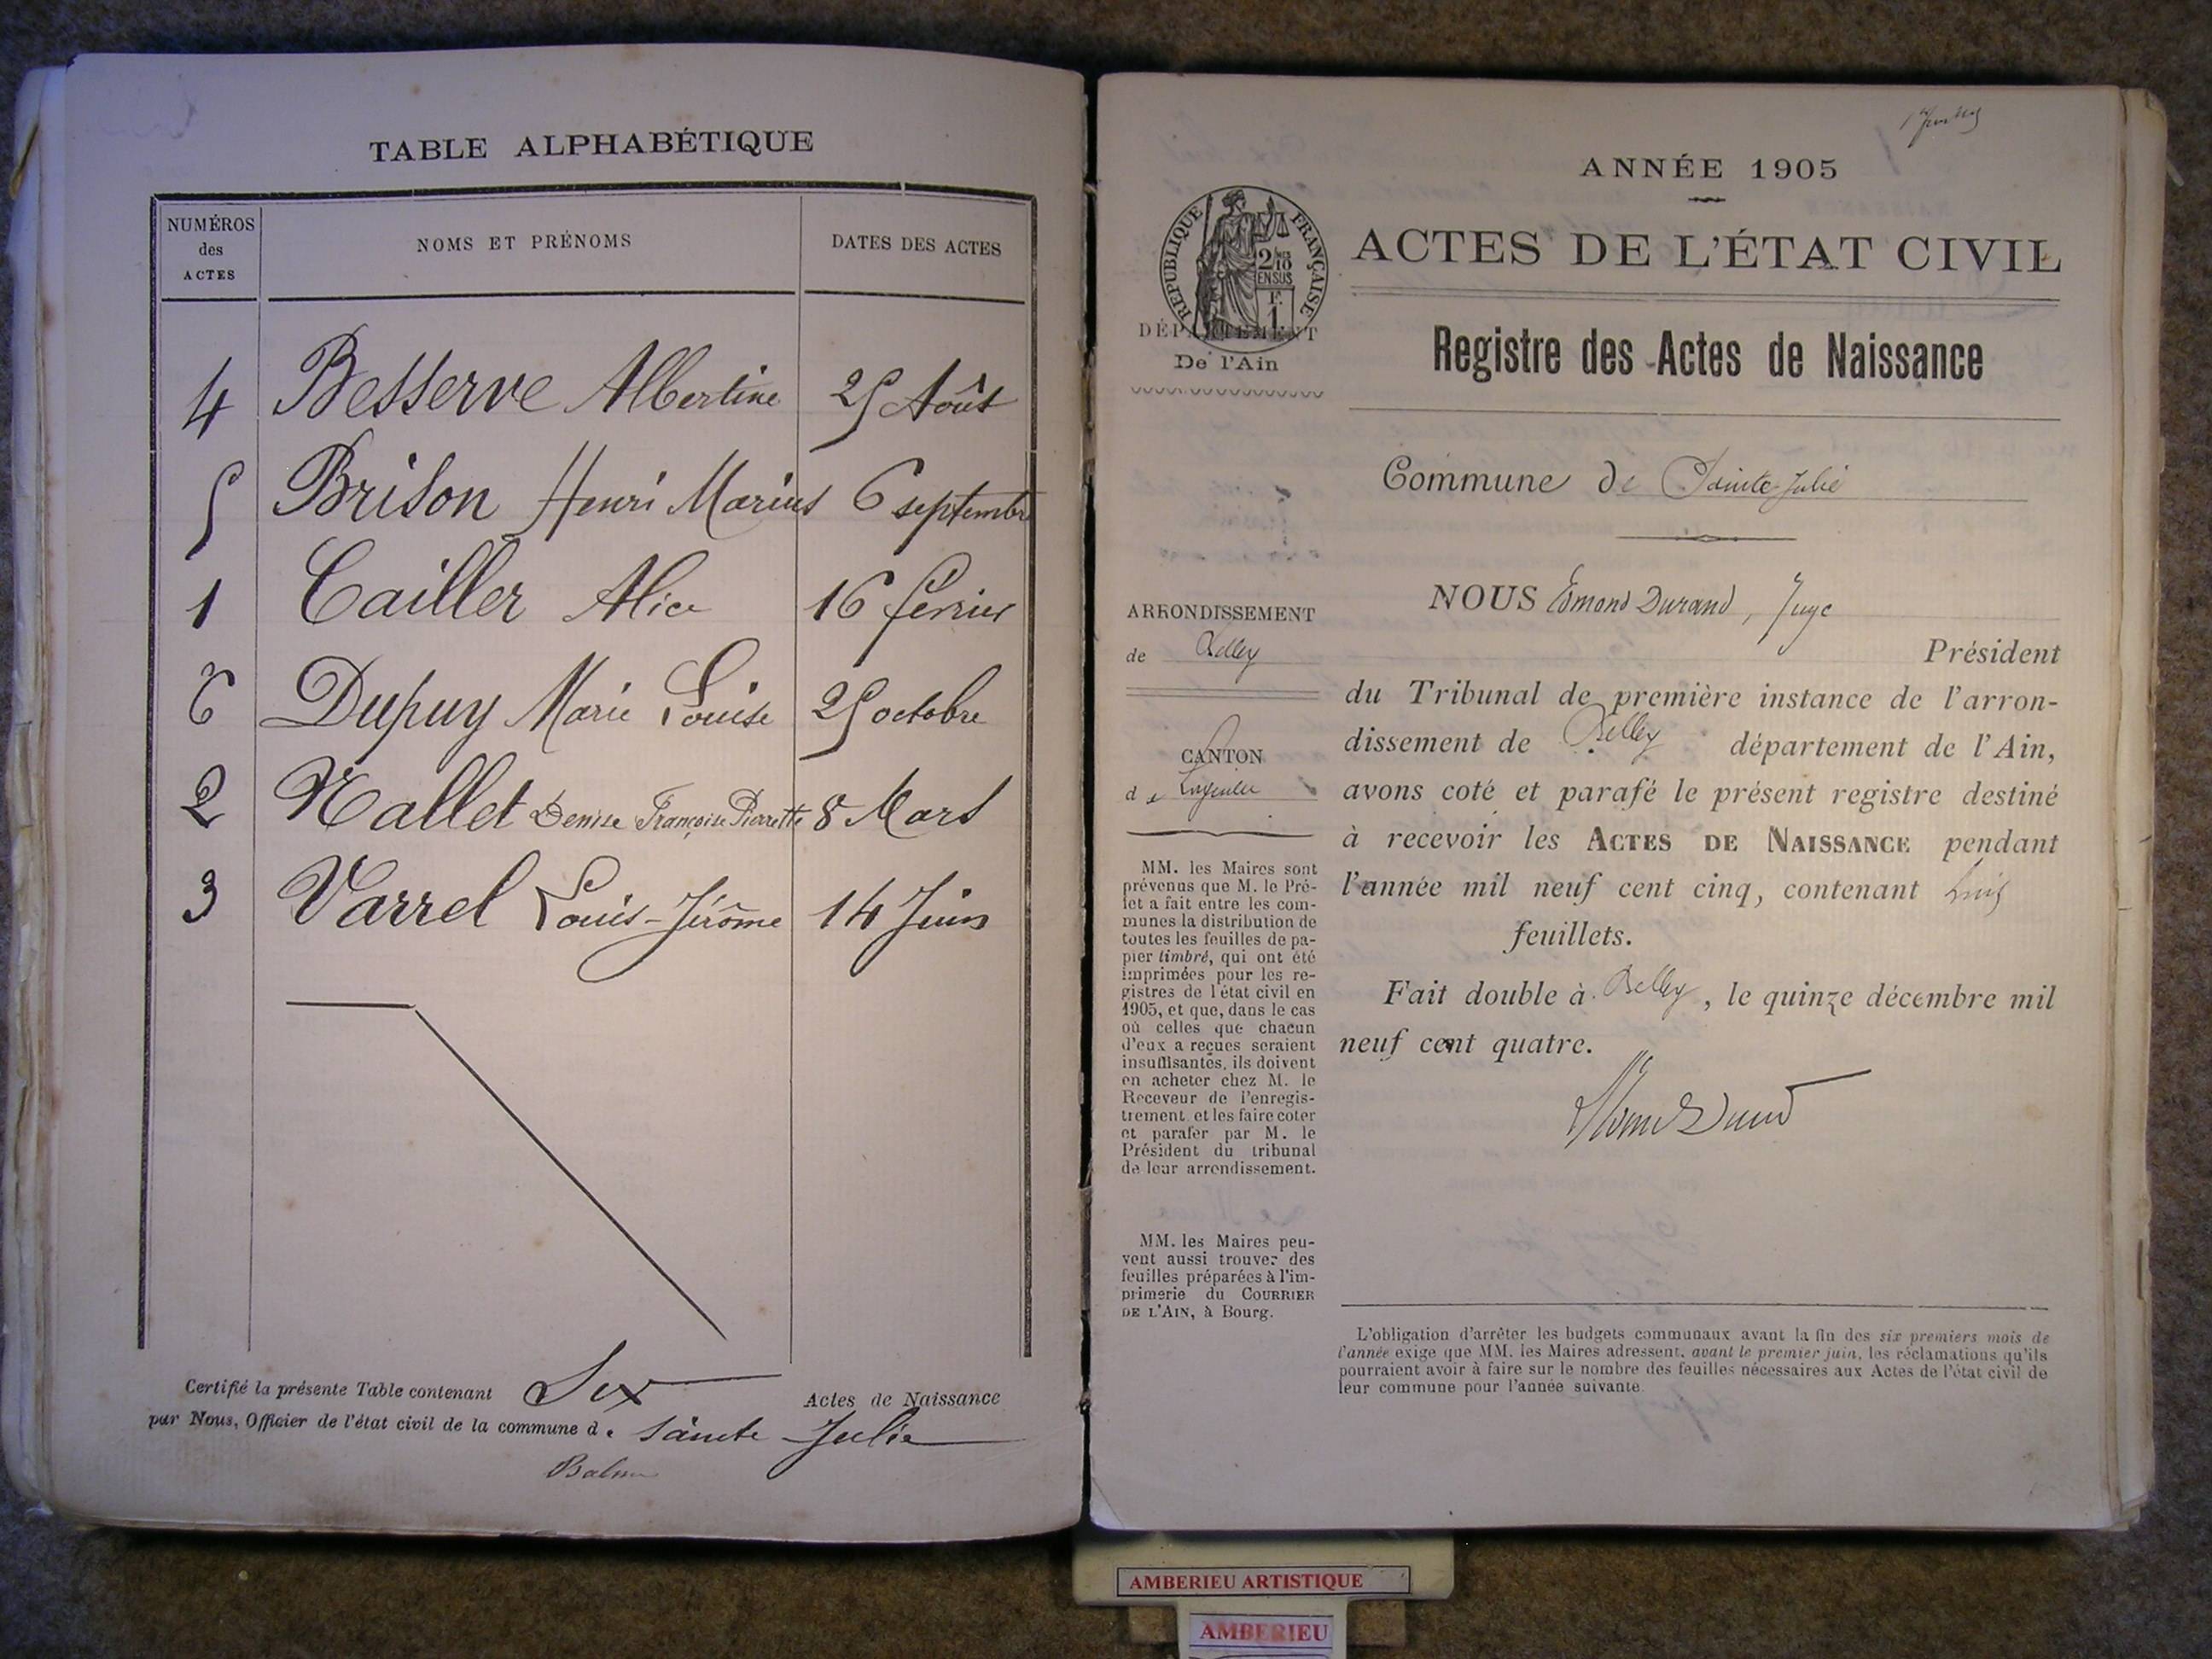 TABLE ALPHABÉTIQUE
NUMÉROS
des
ACTES
NOMS ET PRÉNOMS
DATES DES ACTES
4 Besserve Albertine 25 Août
5 Brison Henri Marius 6 septembre
1 Cailler Alice 16 février
6 Dupuy Marie Louise 25 octobre
2 Denise Françoise Pierrette 8 Mars
3 Varrel Louis-Jérôme 14 Juin
Certifié la présente Table contenant Six Actes de Naissance
par Nous, Officier de l'état civil de la commune de Sainte Julie
ANNÉE 1905
ACTES DE L'ÉTAT CIVIL
RÉPUBLIQUE FRANÇAISE
DÉPARTEMENT
De l'Ain
Registre des Actes de Naissance
Commune de Sainte-Julie
ARRONDISSEMENT
de Belley
CANTON
de Lagnieu
MM. les Maires sont
prévenus que M. le Pré-
fet a fait entre les com-
munes la distribution de
toutes les feuilles de pa-
pier timbré, qui ont été
imprimées pour les re-
gistres de l'état civil en
1905, et que, dans le cas
où celles que chacun
d'eux a reçues seraient
insuffisantes, ils doivent
en acheter chez M. le
Receveur de l'enregis-
trement et les faire coter
et parafer par M. le
Président du tribunal
de leur arrondissement.
MM. les Maires peu-
vent aussi trouver des
feuilles préparées à l'im-
primerie du COURRIER
DE L'AIN, à Bourg.
NOUS Edmond Durand, Juge
Président
du Tribunal de première instance de l'arron-
dissement de Belley département de l'Ain,
avons coté et parafé le présent registre destiné
à recevoir les ACTES DE NAISSANCE pendant
l'année mil neuf cent cinq, contenant
feuillets.
Fait double à Belley, le quinze décembre mil
neuf cent quatre.
L'obligation d'arrêter les budgets communaux avant la fin des six premiers mois de
l'année exige que MM. les Maires adressent, avant le premier juin, les réclamations qu'ils
pourraient avoir à faire sur le nombre des feuilles nécessaires aux Actes de l'état civil de
leur commune pour l'année suivante.
AMBERIEU ARTISTIQUE
AMBERIEU